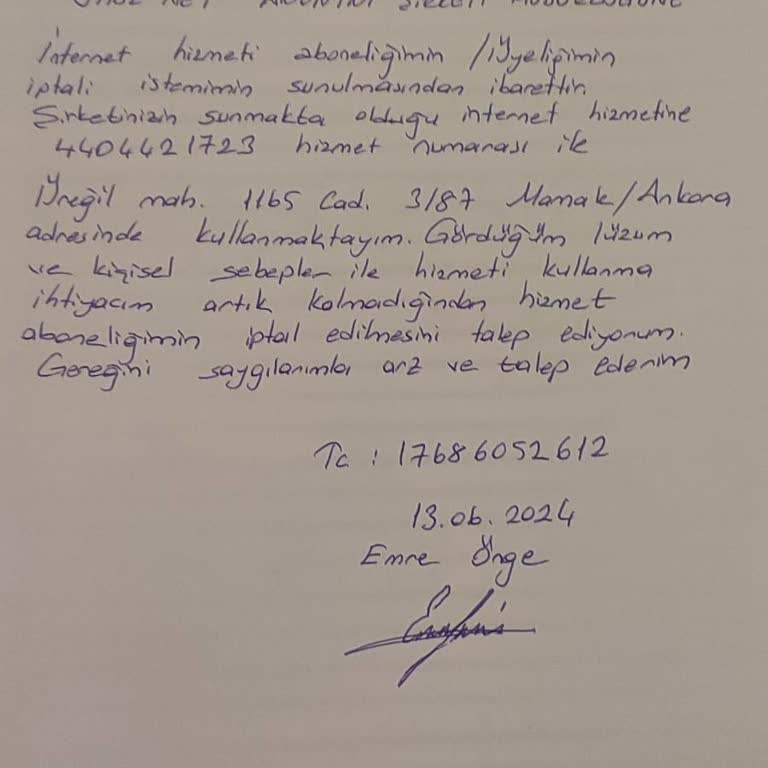 NET ANONİM ŞİRKETİ MÜDÜRLÜĞÜNE
İnternet hizmeti aboneliğimin /Üyeliğimin
iptali istemimin sunulmasından ibarettir.
Şirketinizin sunmakta olduğu internet hizmetine
4404421723 hizmet numarası ile
Üreğil mah. 1165 Cad. 3/87 Mamak/Ankara
adresinde kullanmaktayım. Gördüğüm lüzum
ve kişisel sebepler ile hizmeti kullanma
ihtiyacım artık kalmadığından hizmet
aboneliğimin iptal edilmesini talep ediyorum.
Gereğini saygılarımla arz ve talep ederim
Tc : 17686052612
13.06.2024
Emre Önge